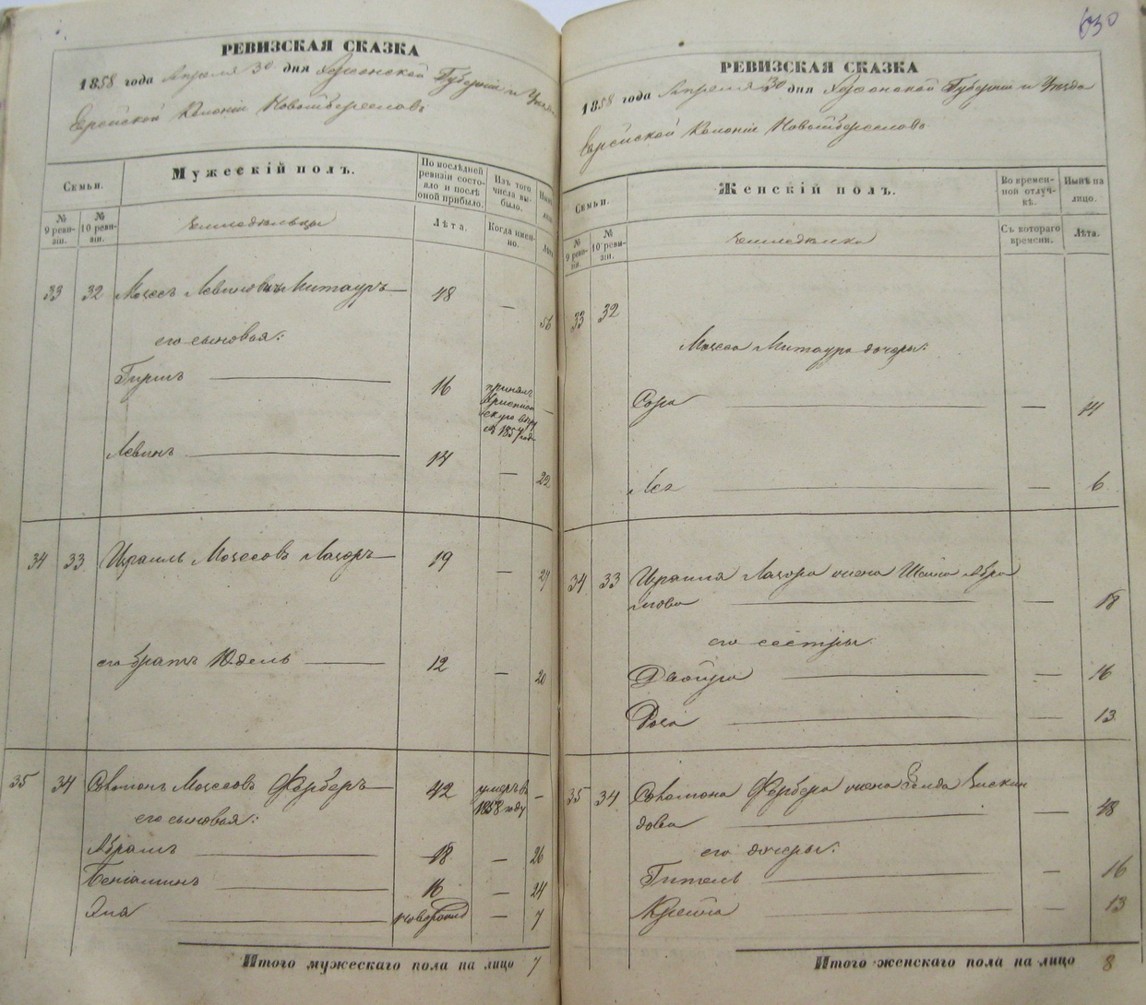 РЕВИЗСКАЯ СКАЗКА
1858 года Апреля 30 дня Херсонской Губерніи и Уезда
Еврейской Колоніи
Семьи.
Мужескій полъ.
По последней ревизіи состояло и после оной прибыло.
Изъ того числа выбыло.
№ 9 ревизіи.
№ 10 ревизіи.
Лѣта.
Когда именно.
33 32 Мовсесъ 48 — 56
его сыновья:
Гиршъ 16 принялъ Христіанскую веру въ 1857 году —
Левинъ 14 — 22
34 33 Израиль Мовсесовъ Лазоръ 19 — 27
его братъ Юдель 12 — 20
35 34 Соломонъ Мовсесовъ Фарберъ 42 умеръ въ 1858 году —
его сыновья:
Абрамъ 18 — 26
Беніаминъ 16 — 24
новорожд — 7
Итого мужескаго пола на лицо 7
650
РЕВИЗСКАЯ СКАЗКА
1858 года Апреля 30 дня Херсонской Губерніи и Уезда
Еврейской Колоніи
Семьи.
Женскій полъ.
Во временной отлучкѣ.
Нынѣ на лицо.
№ 9 ревизіи.
№ 10 ревизіи.
Съ котораго времени.
Лѣта.
33 32
дочери:
Сора — 14
Лея — 6
34 33 Израиля Лазора жена Абрамова — 18
его сестры
Двойра — 16
Роза — 13
35 34 Соломона Фарбера жена — 48
его дочери:
Гитель — 16
Крейна — 13
Итого женскаго пола на лицо 8